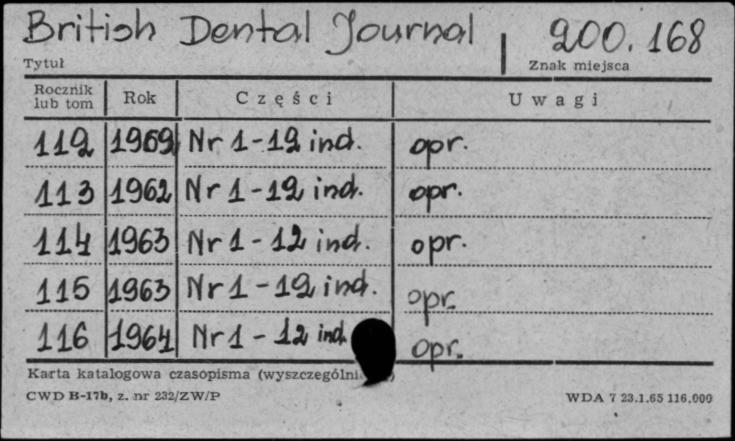 British Dental Journal 200.168
Tytuł Znak miejsca
Rocznik lub tom Rok Części Uwagi
112 1962 Nr 1-12 ind. opr.
113 1962 Nr 1-12 ind. opr.
114 1963 Nr 1-12 ind. opr.
115 1963 Nr 1-12 ind. opr.
116 1964 Nr 1-12 ind. opr.
Karta katalogowa czasopisma
CWD B-17b, z. nr 232/ZW/P WDA 7 23.1.65 116.000